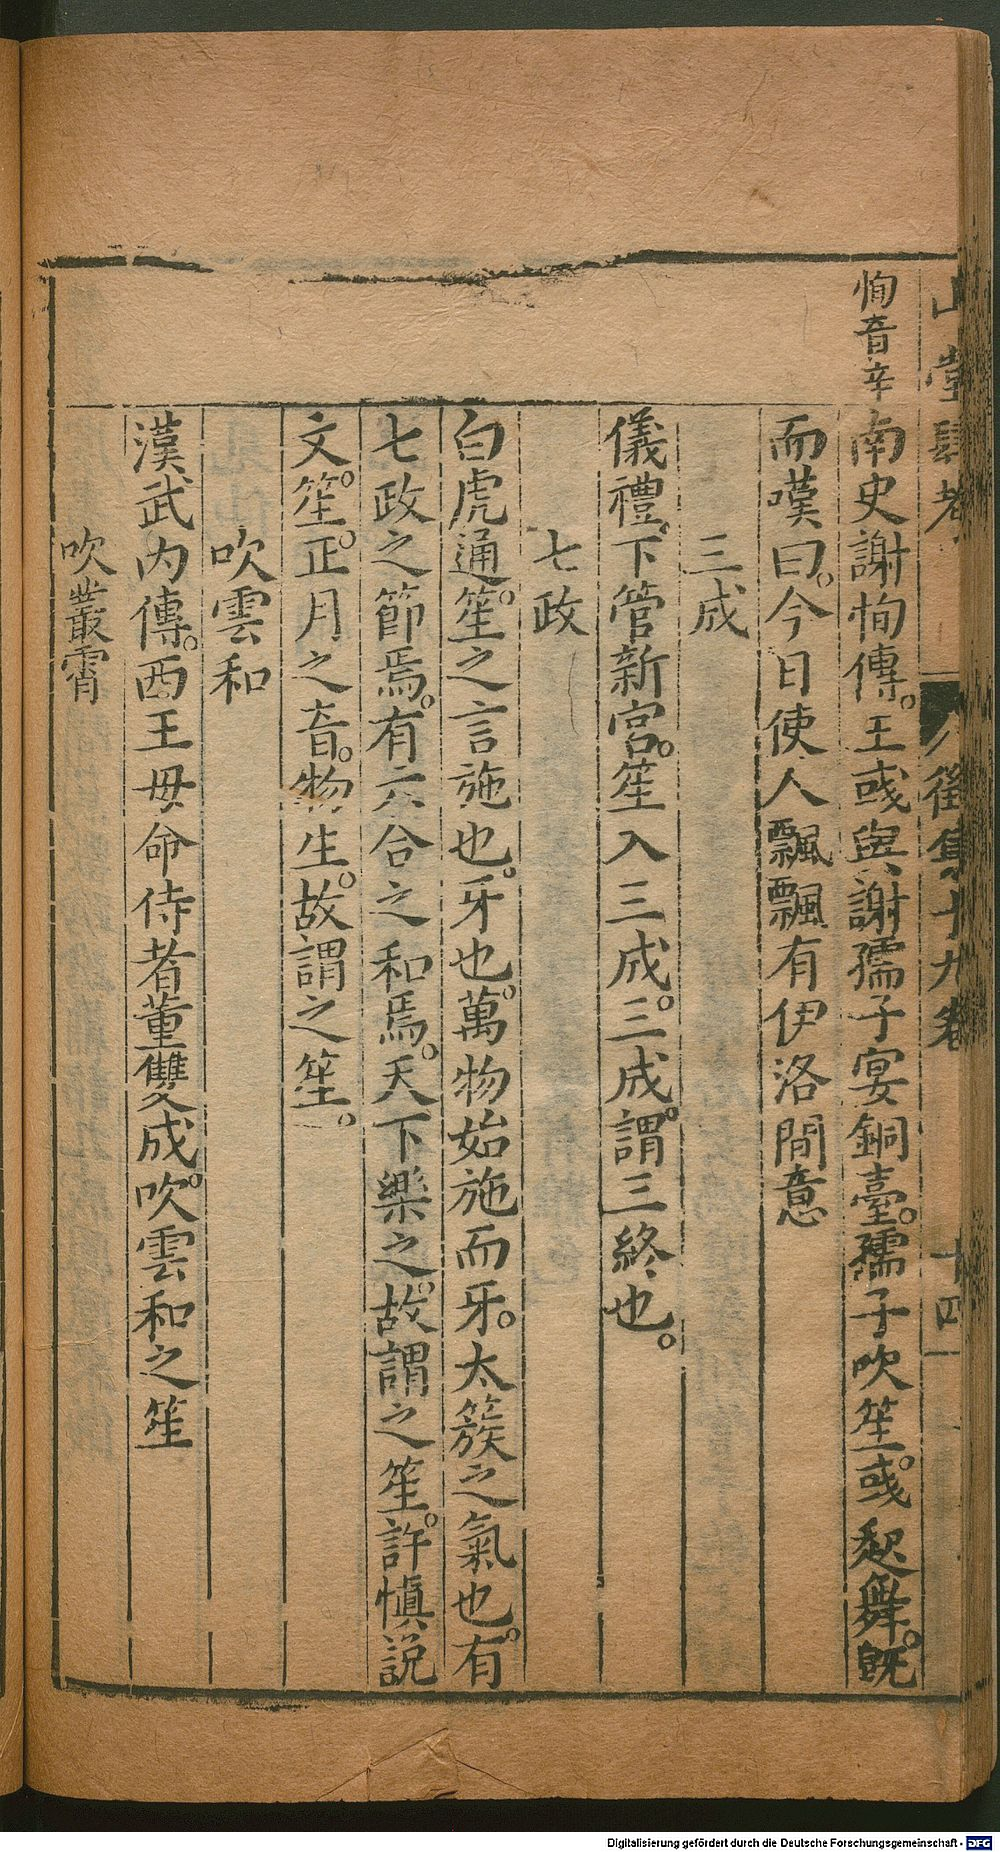 山堂肆考 後集十九卷 十四
恂音辛
南史謝恂傳。王彧與謝孺子宴銅臺。孺子吹笙。彧起舞。既
而嘆曰。今日使人飄飄有伊洛間意
三成
儀禮。下管新宮。笙入三成。三成。謂三終也。
七政
白虎通。笙之言施也。牙也。萬物始施而牙。太簇之氣也。有
七政之節焉。有六合之和焉。天下樂之。故謂之笙。許慎說
文。笙。正月之音。物生。故謂之笙。
吹雲和
漢武內傳。西王母命侍者董雙成。吹雲和之笙
吹叢霄
Digitalisierung gefördert durch die Deutsche Forschungsgemeinschaft - DFG